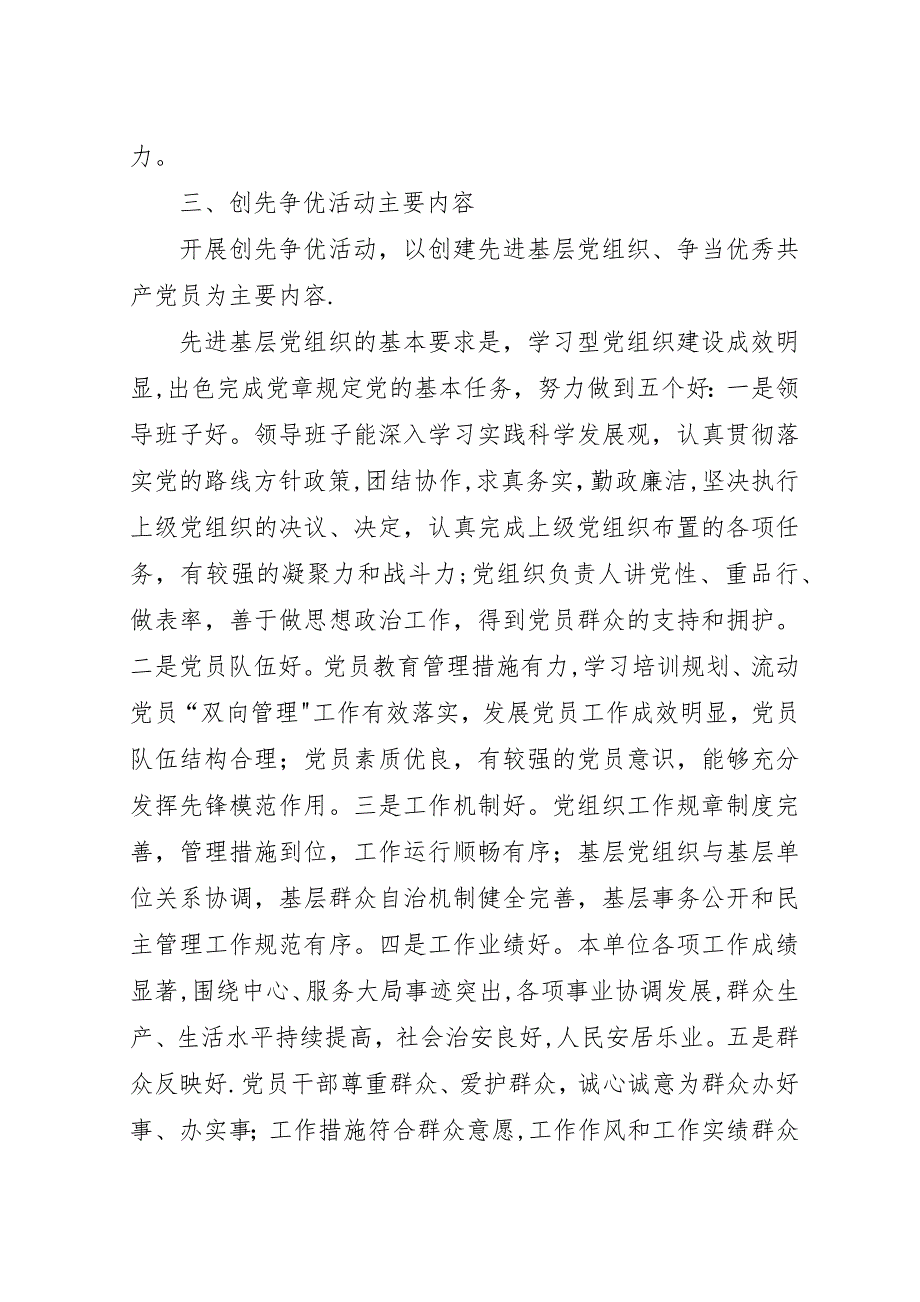 力。
三、创先争优活动主要内容
开展创先争优活动，以创建先进基层党组织、争当优秀共
产党员为主要内容.
先进基层党组织的基本要求是，学习型党组织建设成效明
显,出色完成党章规定党的基本任务，努力做到五个好：一是领
导班子好。领导班子能深入学习实践科学发展观，认真贯彻落
实党的路线方针政策,团结协作,求真务实，勤政廉洁,坚决执行
上级党组织的决议、决定，认真完成上级党组织布置的各项任
务，有较强的凝聚力和战斗力;党组织负责人讲党性、重品行、
做表率，善于做思想政治工作，得到党员群众的支持和拥护。
二是党员队伍好。党员教育管理措施有力,学习培训规划、流动
党员“双向管理"工作有效落实，发展党员工作成效明显，党员
队伍结构合理；党员素质优良，有较强的党员意识，能够充分
发挥先锋模范作用。三是工作机制好。党组织工作规章制度完
善，管理措施到位，工作运行顺畅有序；基层党组织与基层单
位关系协调，基层群众自治机制健全完善，基层事务公开和民
主管理工作规范有序。四是工作业绩好。本单位各项工作成绩
显著,围绕中心、服务大局事迹突出,各项事业协调发展,群众生
产、生活水平持续提高，社会治安良好,人民安居乐业。五是群
众反映好.党员干部尊重群众、爱护群众，诚心诚意为群众办好
事、办实事；工作措施符合群众意愿,工作作风和工作实绩群众